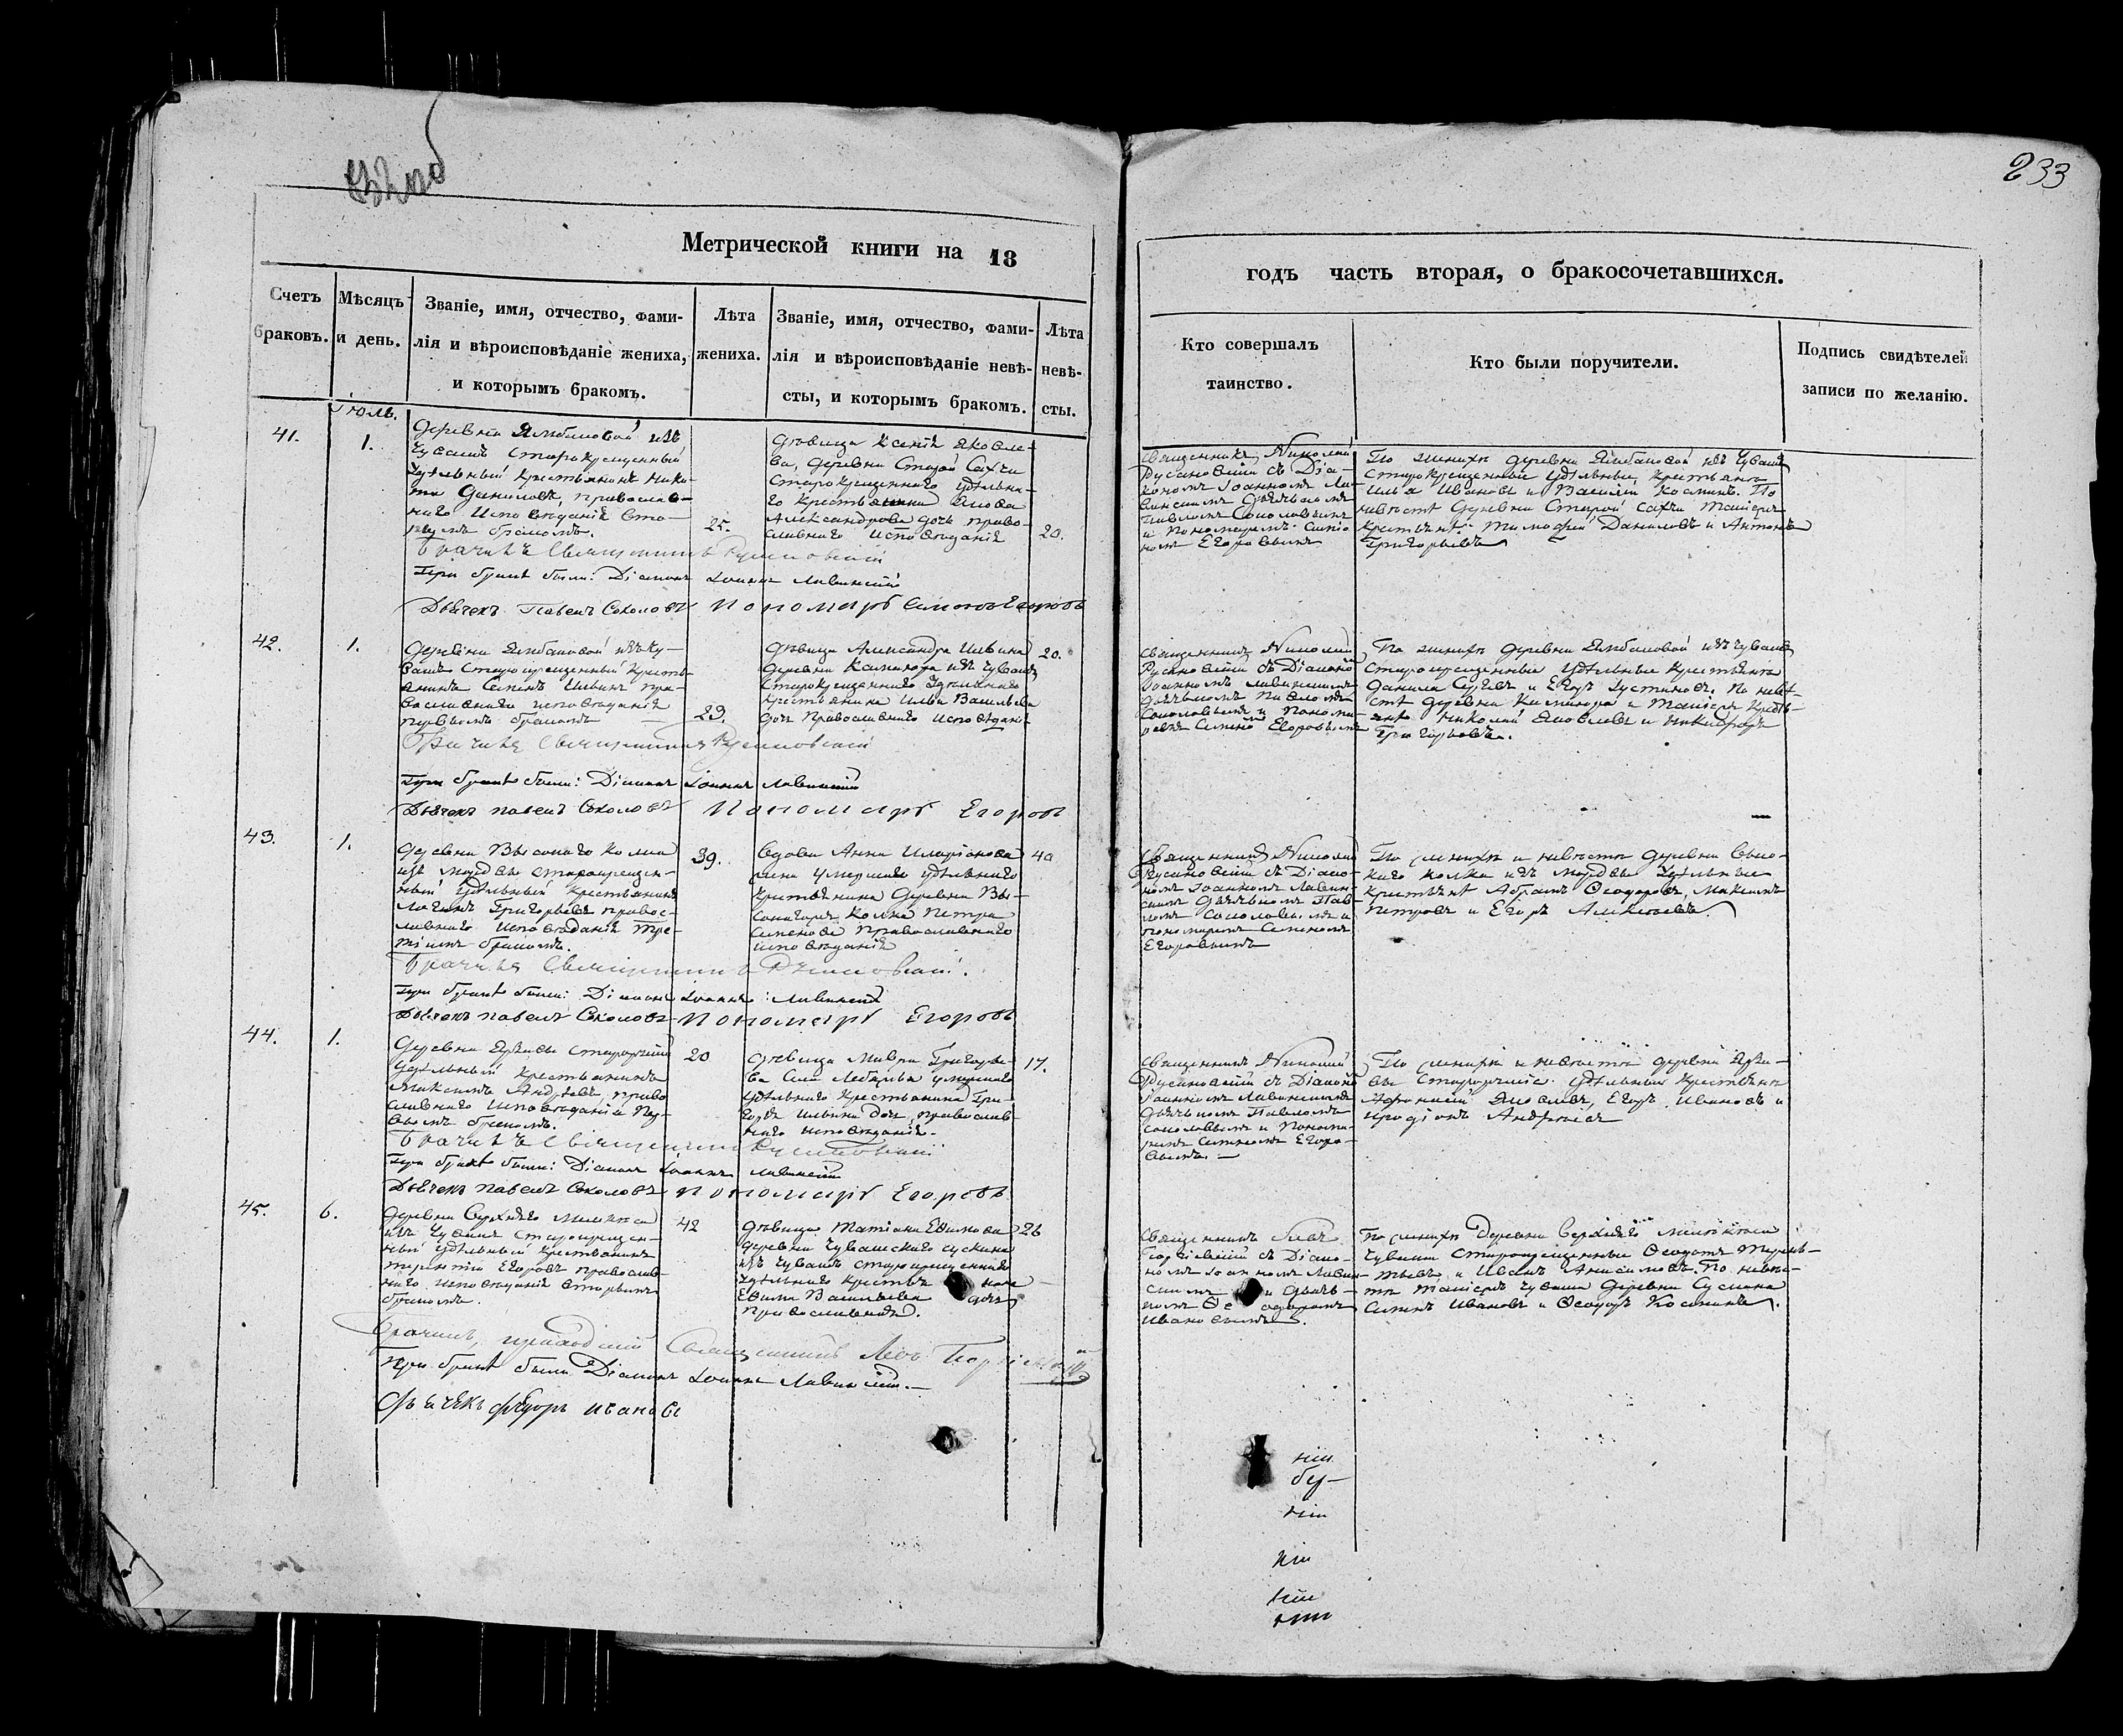 233
Метрической книги на 18
годъ часть вторая, о бракосочетавшихся.
Счетъ браковъ.
Мѣсяцъ и день.
Званіе, имя, отчество, фами-
лія и вѣроисповѣданіе жениха,
и которымъ бракомъ.
Лѣта
жениха.
Званіе, имя, отчество, фами-
лія и вѣроисповѣданіе невѣ-
сты, и которымъ бракомъ.
Лѣта
невѣ-
сты.
Кто совершалъ
таинство.
Кто были поручители.
Подпись свидѣтелей
записи по желанію.
Іюль.
41.
1.
Деревни Ямбаховой изъ
Чувашъ старокрещенный
удѣльный крестьянинъ Ники-
та Даниловъ, православ-
наго исповѣданія вто-
рымъ бракомъ.
25.
дѣвица Ксенія Яковле-
ва, деревни Старой Сахчи
старокрещеннаго удѣльна-
го крестьянина Якова
Александрова дочь право-
славнаго исповѣданія
20.
Священникъ Николай
Русановскій съ Діа-
кономъ Іоанномъ Ла-
винскимъ Дьячкомъ
Павломъ Соколовымъ
и Пономаремъ Симео-
номъ Егоровымъ
По женихѣ деревни Ямбаховой изъ Чувашъ
старокрещенные удѣльные крестьяна
Илья Ивановъ и Василій Козминъ. По
невѣстѣ деревни Старой Сахчи таковые
крестьянѣ Тимофей Даниловъ и Антонъ
Григорьевъ
Вѣнчалъ Священникъ Русановскій
При бракѣ были: Діаконъ Іоаннъ Лавинскій
Дьячекъ Павелъ Соколовъ Пономарь Симеонъ Егоровъ
42.
1.
Деревни Ямбаховой изъ Чу-
вашъ старокрещенный кресть-
янинъ Семенъ Ильинъ пра-
вославнаго исповѣданія
первымъ бракомъ
23.
дѣвица Александра Ильина
деревни из Чувашъ
старокрещеннаго удѣльнаго
крестьянина Ильи Васильева
дочь православнаго исповѣданія
20.
Священникъ Николай
Русановскій съ Діакономъ
Іоанномъ Лавинскимъ
дьячкомъ Павломъ
Соколовымъ и Понома-
ремъ Егоровымъ
По женихѣ деревни Ямбаховой изъ Чувашъ
старокрещенные удѣльные крестьяна
Данила Сергѣевъ и Егоръ Устиновъ. По невѣ-
стѣ деревни таковые кресть-
янѣ Николай Яковлевъ и Никифоръ
Григорьевъ.
Вѣнчалъ Священникъ Русановскій
При бракѣ были: Діаконъ Іоаннъ Лавинскій
Дьячекъ Павелъ Соколовъ Пономарь Егоровъ
43.
1.
Деревни Высокаго Колка
изъ мордвы старокрещен-
ный удѣльный крестьянинъ
Логинъ Григорьевъ правос-
лавнаго исповѣданія тре-
тьимъ бракомъ.
39.
Вдова Анна Иларіонова
жена умершаго удѣльнаго
крестьянина деревни Вы-
сокаго Колка Петра
Семенова православнаго
исповѣданія
40
Священникъ Николай
Русановскій съ Діако-
номъ Іоанномъ Лавин-
скимъ дьячкомъ Пав-
ломъ Соколовымъ и
пономаремъ Семеномъ
Егоровымъ
По женихѣ и невѣстѣ деревни Высо-
каго Колка изъ мордвы удѣльные
крестьянѣ Абрамъ Ѳеодоровъ, Максимъ
Петровъ и Егоръ Алексѣевъ.
Вѣнчалъ Священникъ Русановскій.
При бракѣ были: Діаконъ Іоаннъ Лавинскій
Дьячекъ Павелъ Соколовъ Пономарь Егоровъ
44.
1.
удѣльный крестьянинъ
Максимъ Андреевъ, право-
славнаго исповѣданія пер-
вымъ бракомъ.
20
дѣвица Мавра Григорье-
ва села Лебяжья умершаго
удѣльнаго крестьянина Гри-
горія Ильина дочь, православ-
наго исповѣданія.
17.
Священникъ Николай
Русановскій съ Діакономъ
Іоанномъ Лавинскимъ
дьячкомъ Павломъ
Соколовымъ и Понома-
ремъ Семеномъ Егоро-
вымъ.
По женихѣ и невѣстѣ деревни
удѣльныя крестьянѣ
Афанасій Яковлевъ, Егоръ Ивановъ и
Иродіонъ Андреевъ
Вѣнчалъ Священникъ Русановскій
При бракѣ были: Діаконъ Іоаннъ Лавинскій
Дьячекъ Павелъ Соколовъ Пономарь Егоровъ
45.
6.
Деревни Верхняго Мелекеса
изъ Чувашъ старокрещен-
ный удѣльный крестьянинъ
Терентій Егоровъ православ-
наго исповѣданія вторымъ
бракомъ.
42
дѣвица Татіана Ефимова
деревни Чувашскаго Сускана
изъ Чувашъ старокрещеннаго
удѣльнаго крестья нина
Ефима Васильева дочь
православная.
26
Священникъ Левъ
съ Діако-
номъ Іоанномъ Лавин-
скимъ и дьяч-
комъ Ѳе одоромъ
Ивановымъ.
По женихѣ деревни Верхняго Мелекеса
Чуваши старокрещенные Ѳеодотъ Терень-
тьевъ и Иванъ Анисимовъ. По невѣс-
тѣ таковые Чуваши деревни Сускана
Семенъ Ивановъ и Ѳеодоръ Козминъ.
Вѣнчалъ приходскій Священникъ Левъ
При бракѣ были Діаконъ Іоаннъ Лавинскій.
Дьячекъ Федоръ Ивановъ